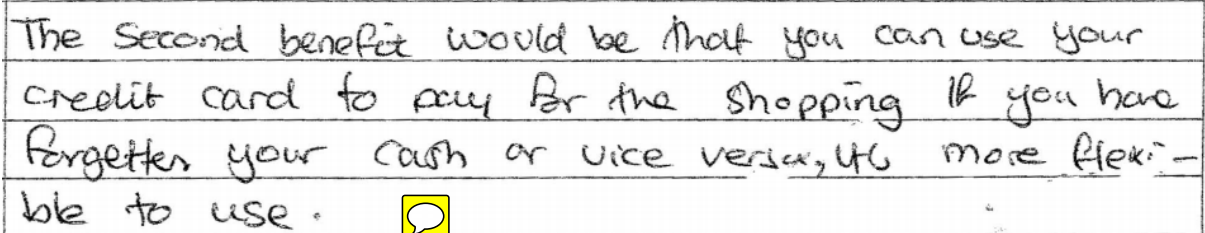 The Second benefit would be that you can use your
credit card to pay for the shopping if you have
forgetten your cash or vice versa, it's more flexi-
ble to use.